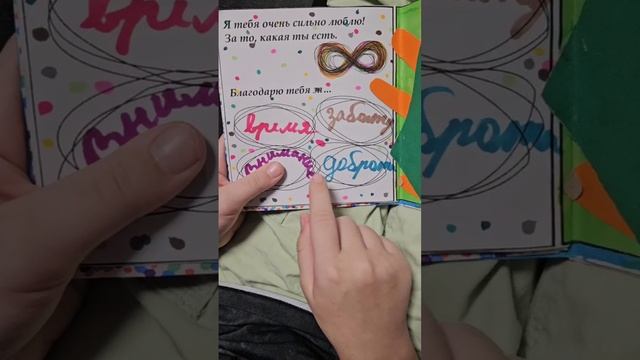 Я тебя очень сильно люблю!
За то, какая ты есть.
Благодарю тебя за ...
время заботу
внимание доброту